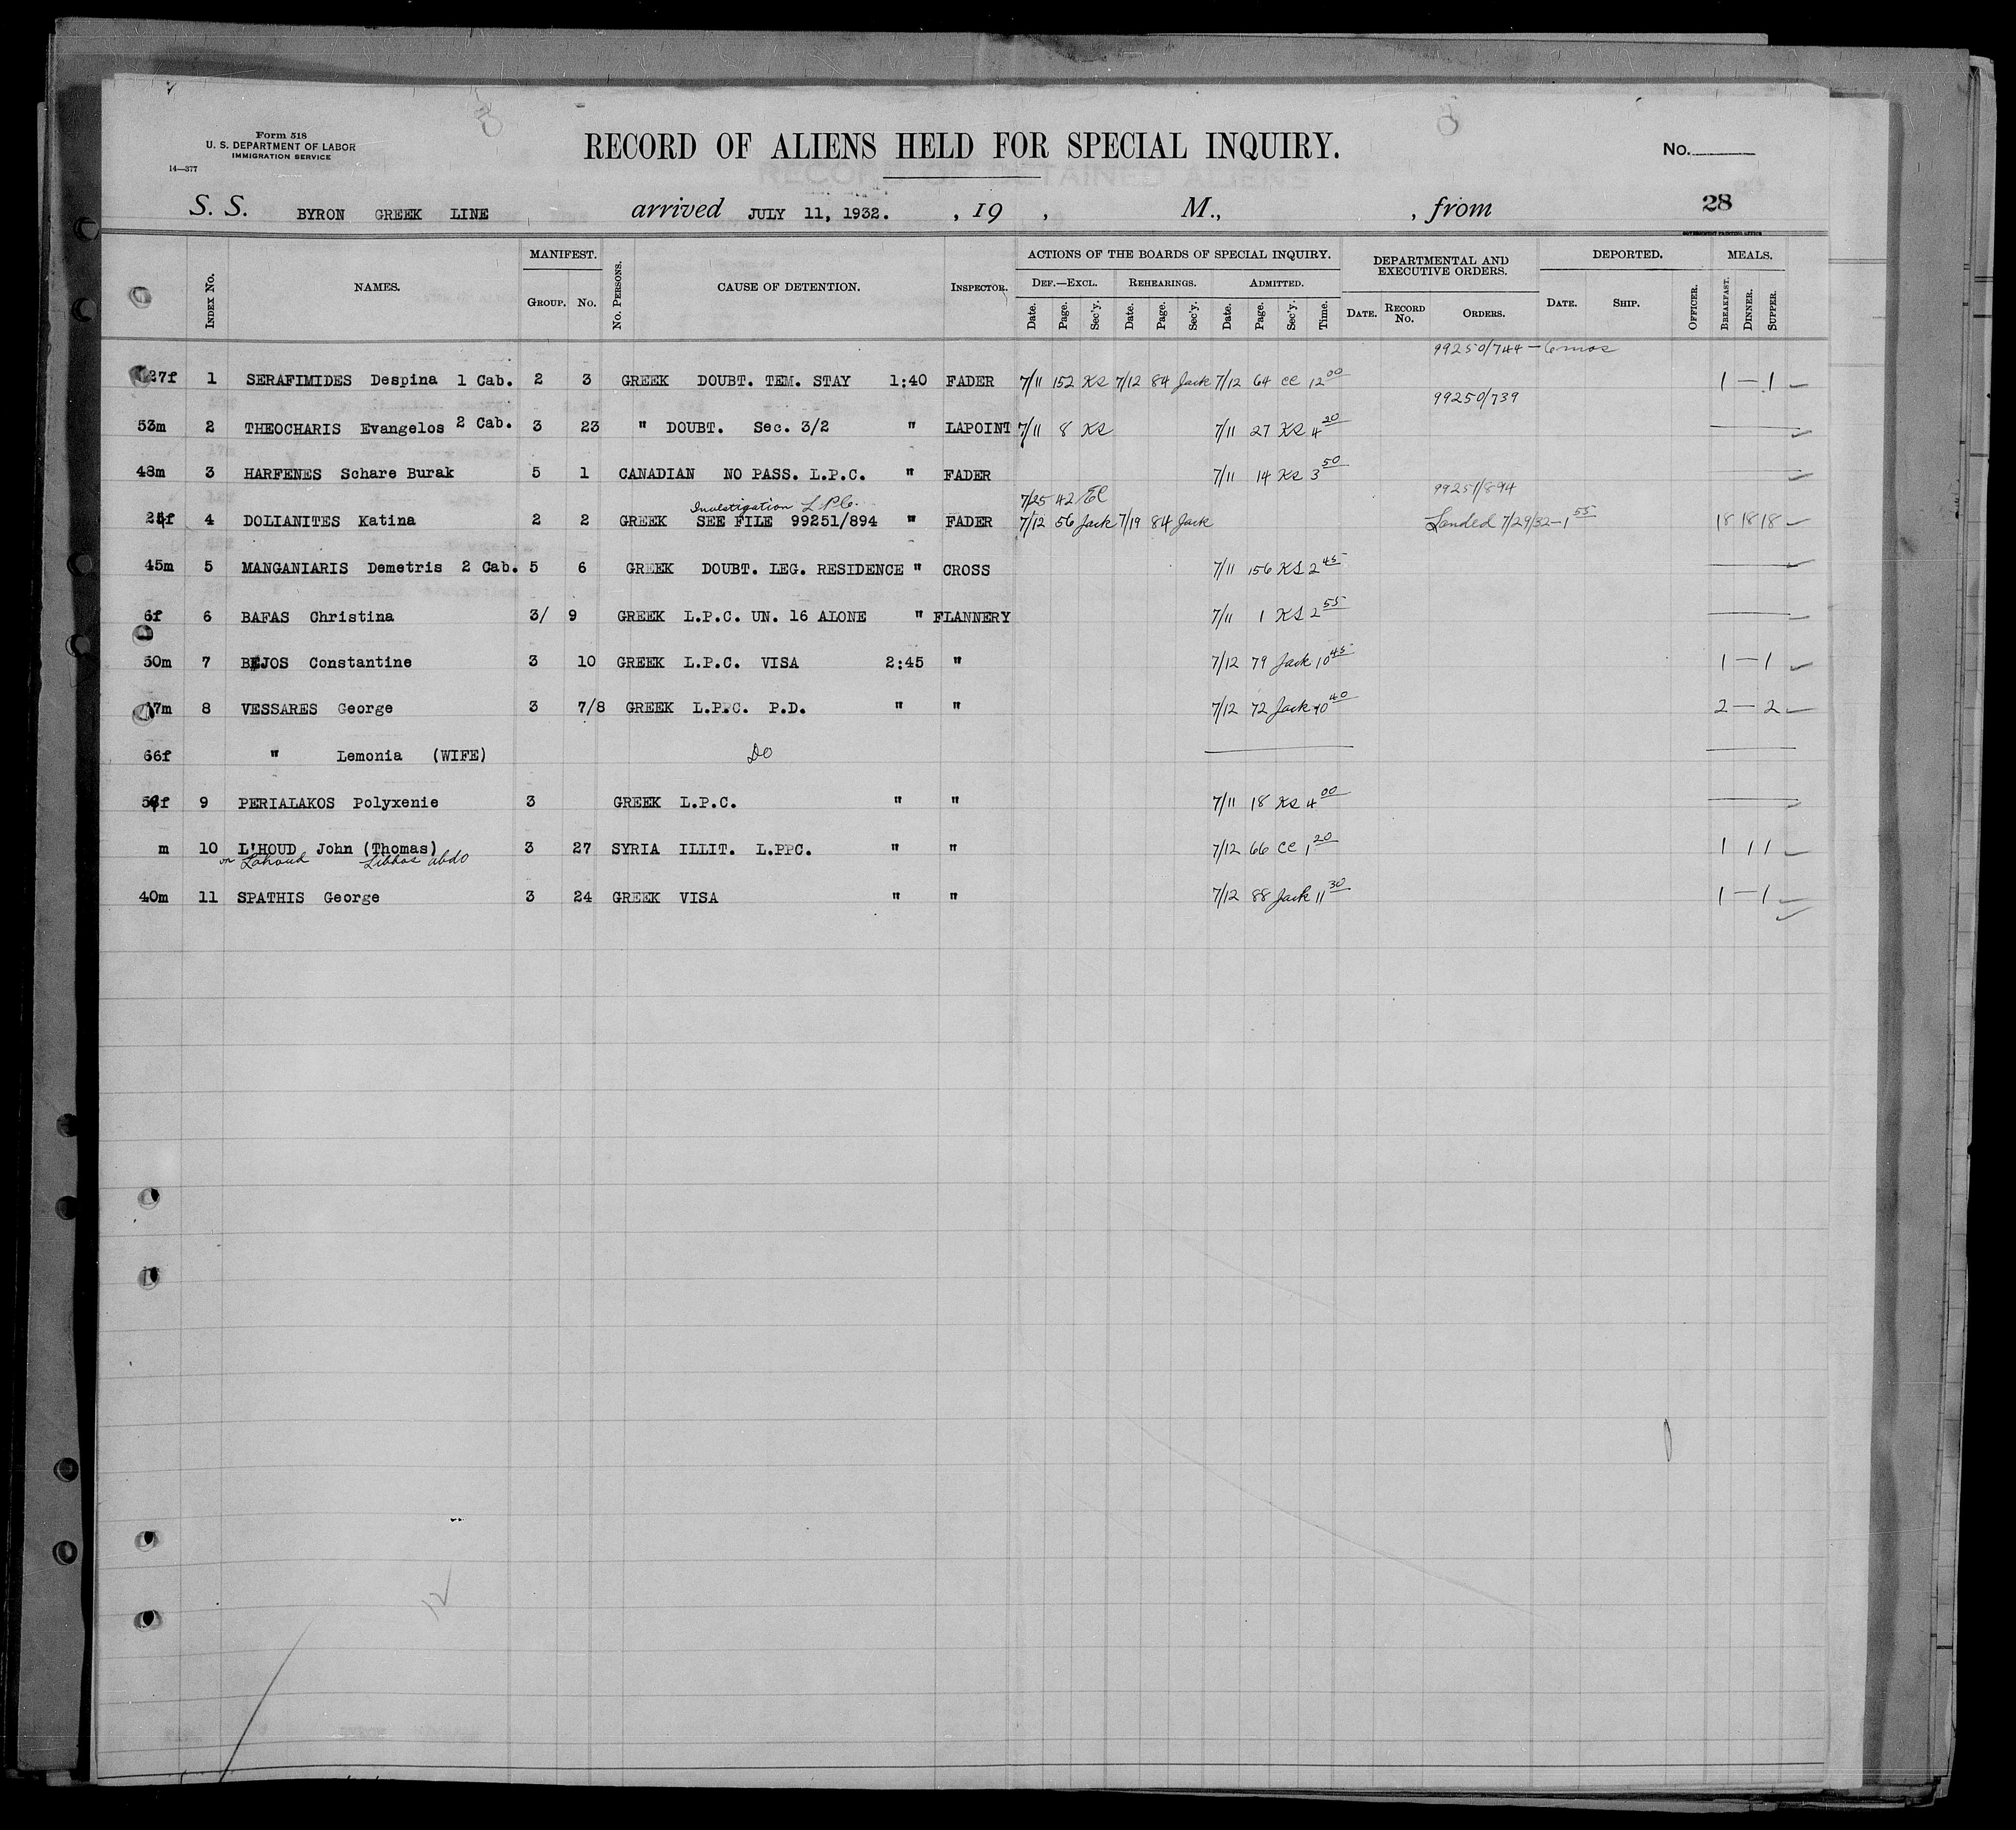 Form 518
U. S. DEPARTMENT OF LABOR
IMMIGRATION SERVICE
14—377
RECORD OF ALIENS HELD FOR SPECIAL INQUIRY.
No.
S. S. BYRON GREEK LINE arrived JULY 11, 1932. , 19 , M., , from 28
GOVERNMENT PRINTING OFFICE
Index No. NAMES. MANIFEST. Group. No. No. Persons. CAUSE OF DETENTION. Inspector. ACTIONS OF THE BOARDS OF SPECIAL INQUIRY. DEPARTMENTAL AND EXECUTIVE ORDERS. DEPORTED. MEALS.
Def.—Excl. Rehearings. Admitted.
Date. Page. Sec'y. Date. Page. Sec'y. Date. Page. Sec'y. Time. Date. Record No. Orders. Date. Ship. Officer. Breakfast. Dinner. Supper.
99250/744 — 6 mos
27f 1 SERAFIMIDES Despina 1 Cab. 2 3 GREEK DOUBT. TEM. STAY 1:40 FADER 7/11 152 KS 7/12 84 Jack 7/12 64 CC 12 00 1 — 1
99250/739
53m 2 THEOCHARIS Evangelos 2 Cab. 3 23 " DOUBT. Sec. 3/2 " LAPOINT 7/11 8 KS 7/11 27 KS 4 20
48m 3 HARFENES Schare Burak 5 1 CANADIAN NO PASS. L.P.C. " FADER 7/11 14 KS 3 50
Investigation L P C. 7/25 42 EC 99251/894
4 DOLIANITES Katina 2 2 GREEK SEE FILE 99251/894 " FADER 7/12 56 Jack 7/19 84 Jack Landed 7/29/32 — 1 55 18 18 18
45m 5 MANGANIARIS Demetris 2 Cab. 5 6 GREEK DOUBT. LEG. RESIDENCE " CROSS 7/11 156 KS 2 45
6f 6 BAFAS Christina 3/ 9 GREEK L.P.C. UN. 16 ALONE " FLANNERY 7/11 1 KS 2 55
50m 7 BEJOS Constantine 3 10 GREEK L.P.C. VISA 2:45 " 7/12 79 Jack 10 45 1 — 1
47m 8 VESSARES George 3 7/8 GREEK L.P.C. P.D. " " 7/12 72 Jack 10 40 2 — 2
66f " Lemonia (WIFE) DO
9 PERIALAKOS Polyxenie 3 GREEK L.P.C. " " 7/11 18 KS 4 00
m 10 L'HOUD John (Thomas) 3 27 SYRIA ILLIT. L.PPC. " " 7/12 66 CC 1 20 1 1 1
or Lahoud abdo
40m 11 SPATHIS George 3 24 GREEK VISA " " 7/12 88 Jack 11 30 1 — 1
12